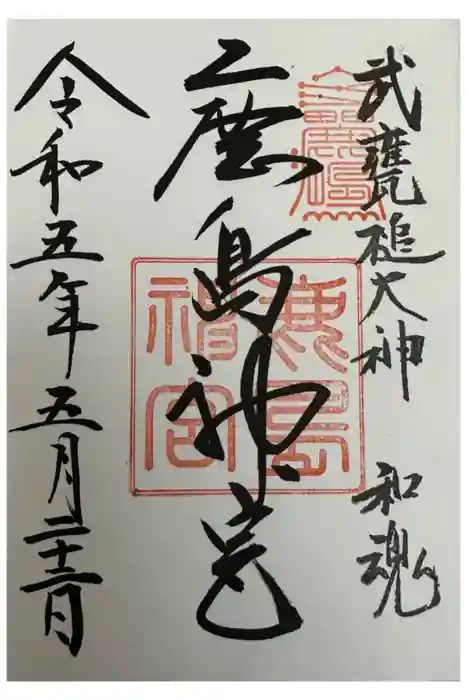 武甕槌大神 和魂
鹿島神宮
令和五年五月二十二日
鹿島
神宮